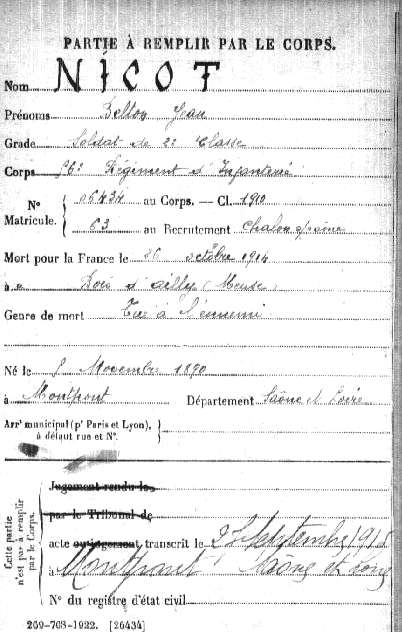 PARTIE À REMPLIR PAR LE CORPS.
Nom NICOT
Prénoms Jean
Grade Soldat de 2e Classe
Corps 56e Régiment d'Infanterie
N° Matricule. { 06434 au Corps. — Cl. 1910
63 au Recrutement Chalon s/Saône
Mort pour la France le 26 octobre 1914
à Bois d'ailly (Meuse)
Genre de mort Tué à l'ennemi
Né le 8 Novembre 1890
à Montpont Département Saône et Loire
Arrt municipal (pr Paris et Lyon), à défaut rue et N°. }
Cette partie n'est pas à remplir par le Corps.
Jugement rendu le
par le Tribunal de
acte ou jugement transcrit le Septembre 1915
à Montpont Saône et Loire
N° du registre d'état civil
269-708-1922. [26434]